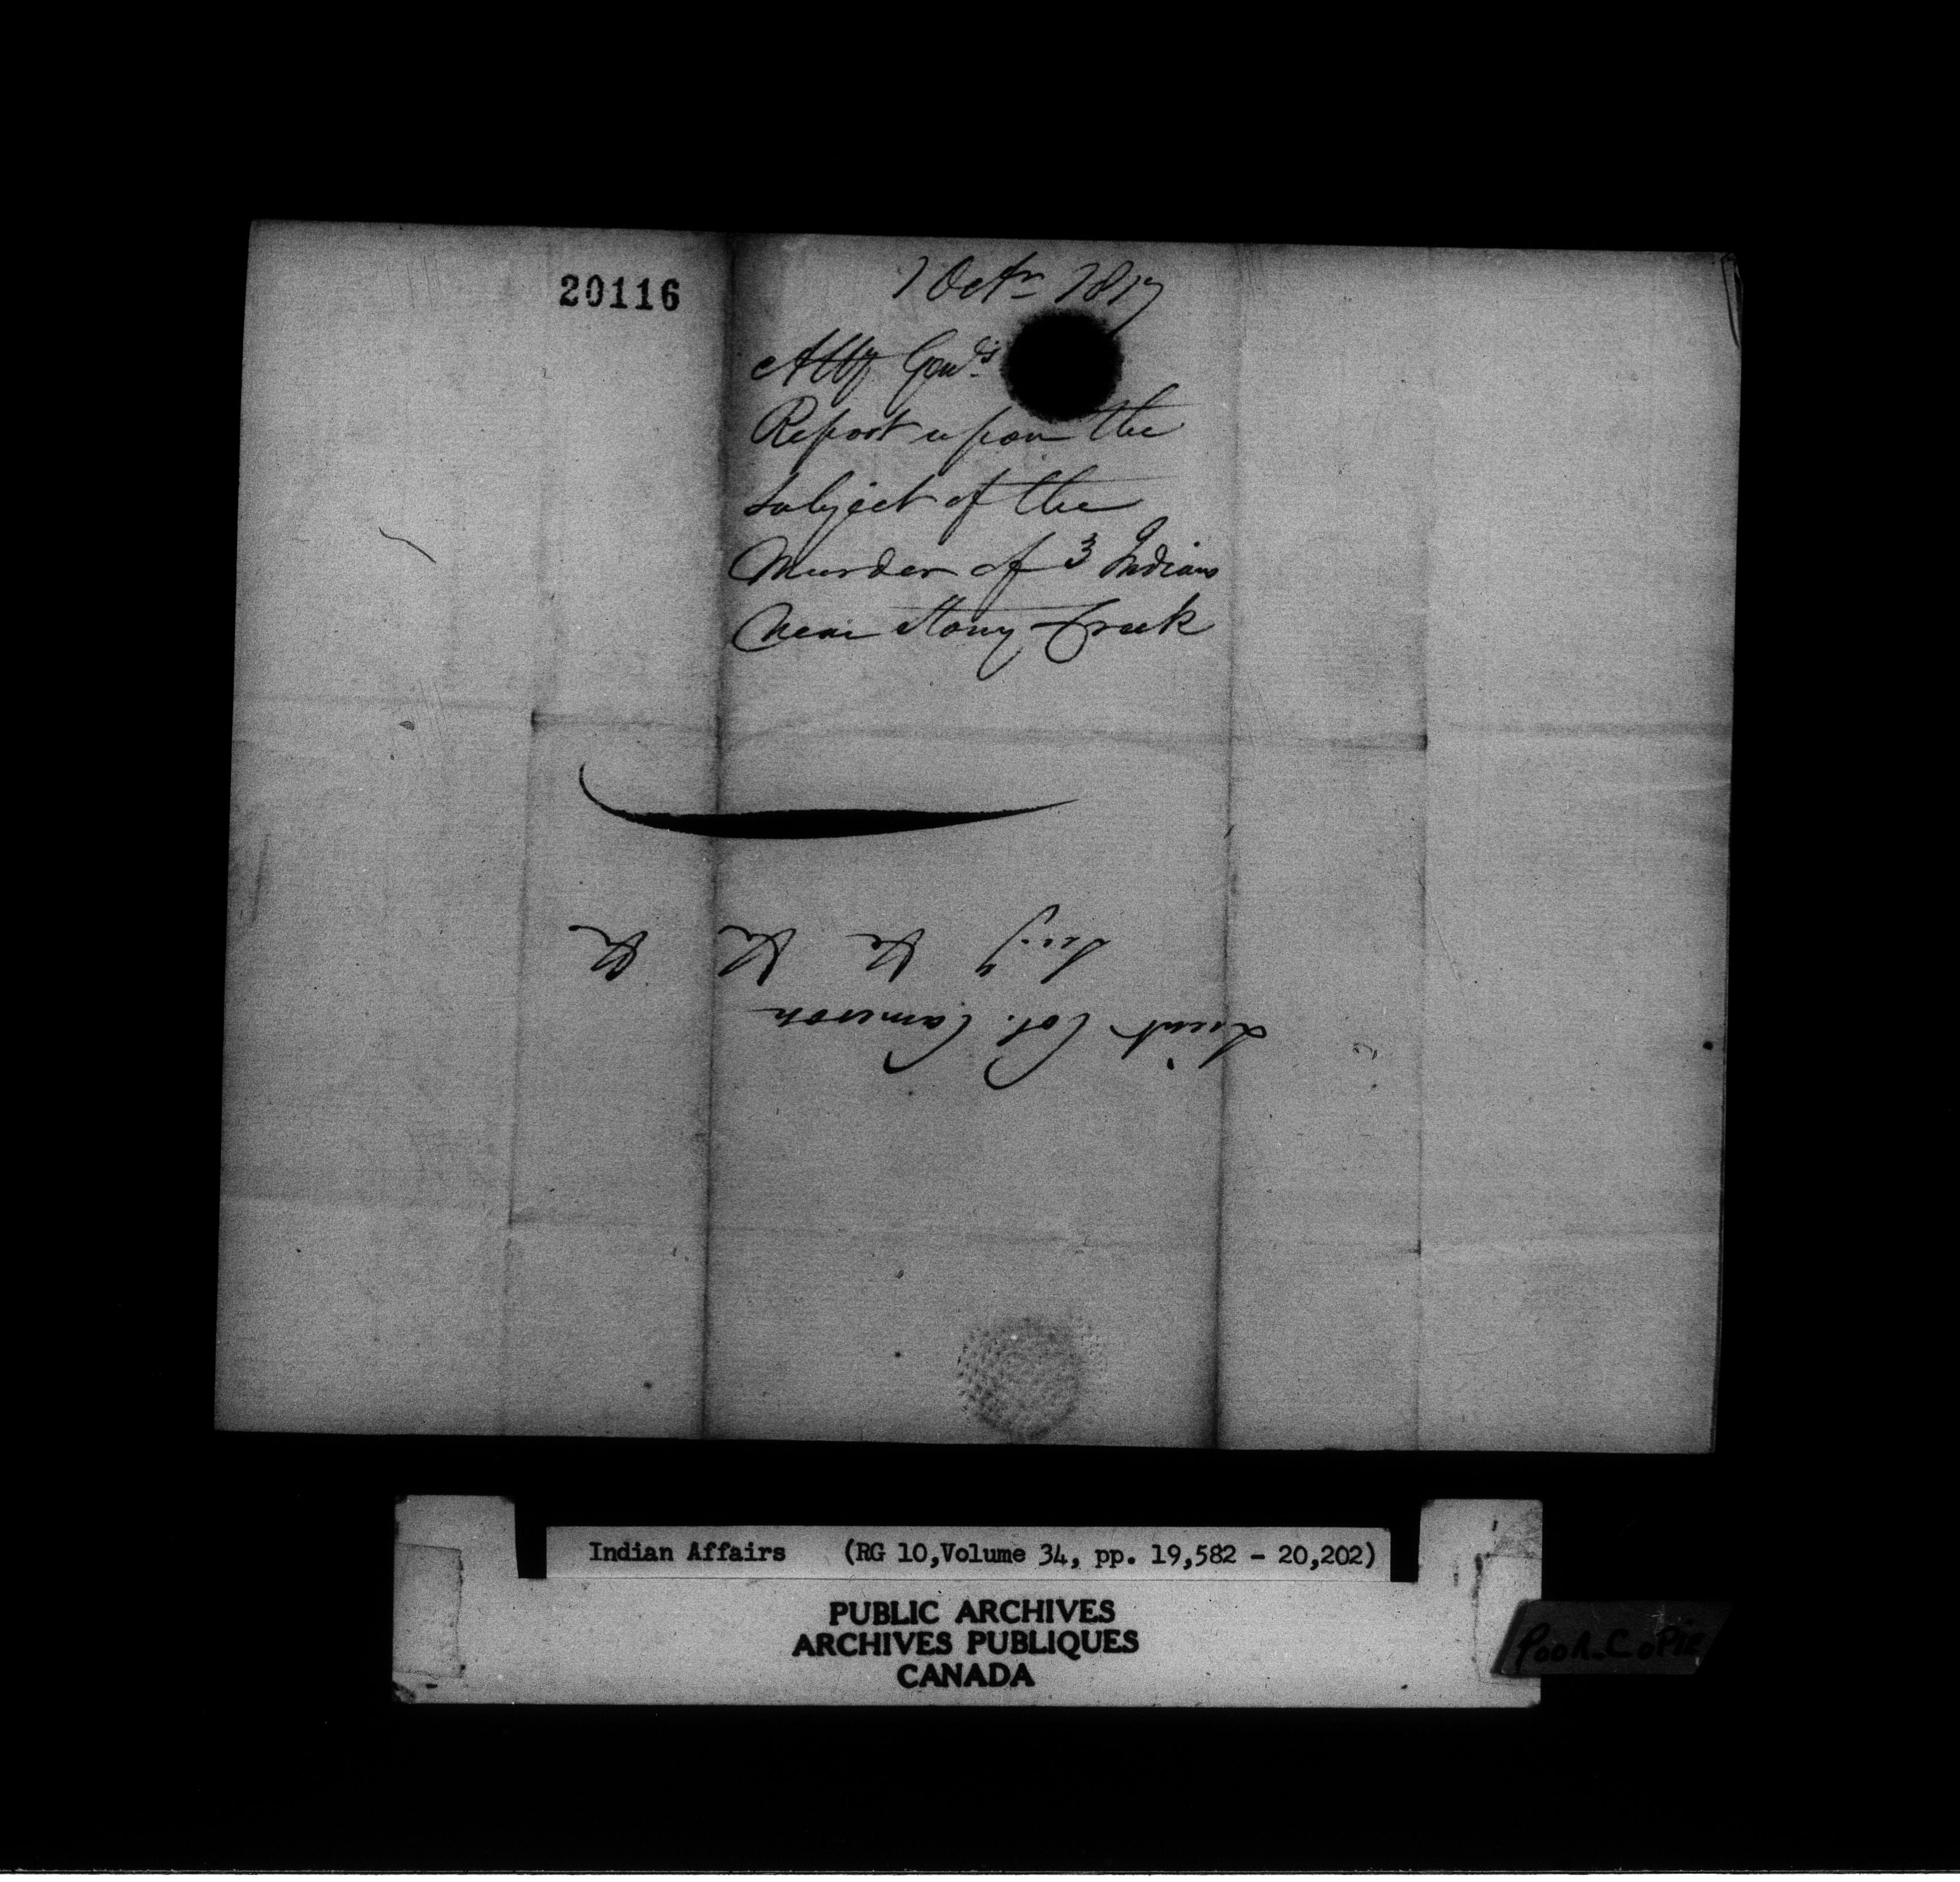 20116
7 Octr 1817
Atty Genl's
Report upon the
subject of the
Murder of 3 Indians
Near Stony Creek
Lieut Col. Cameron
&c &c &c
Indian Affairs (RG 10, Volume 34, pp. 19,582 - 20,202)
PUBLIC ARCHIVES
ARCHIVES PUBLIQUES
CANADA
POOR COPIE